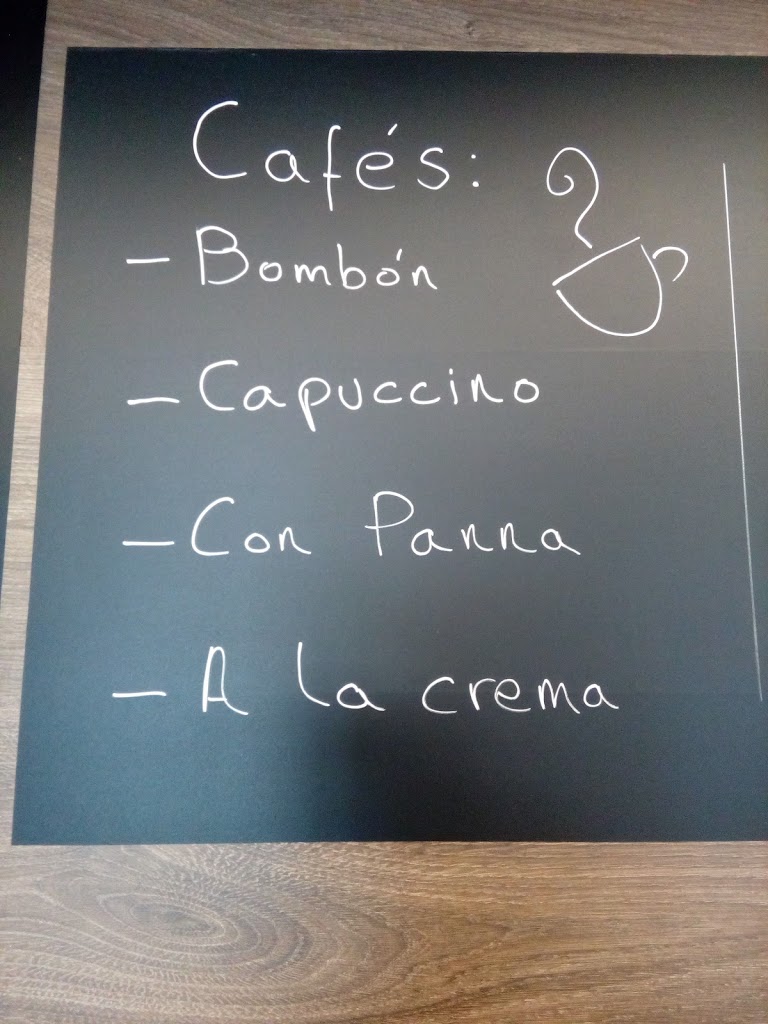 Cafés:
- Bombón
- Capuccino
- Con Panna
- A la crema